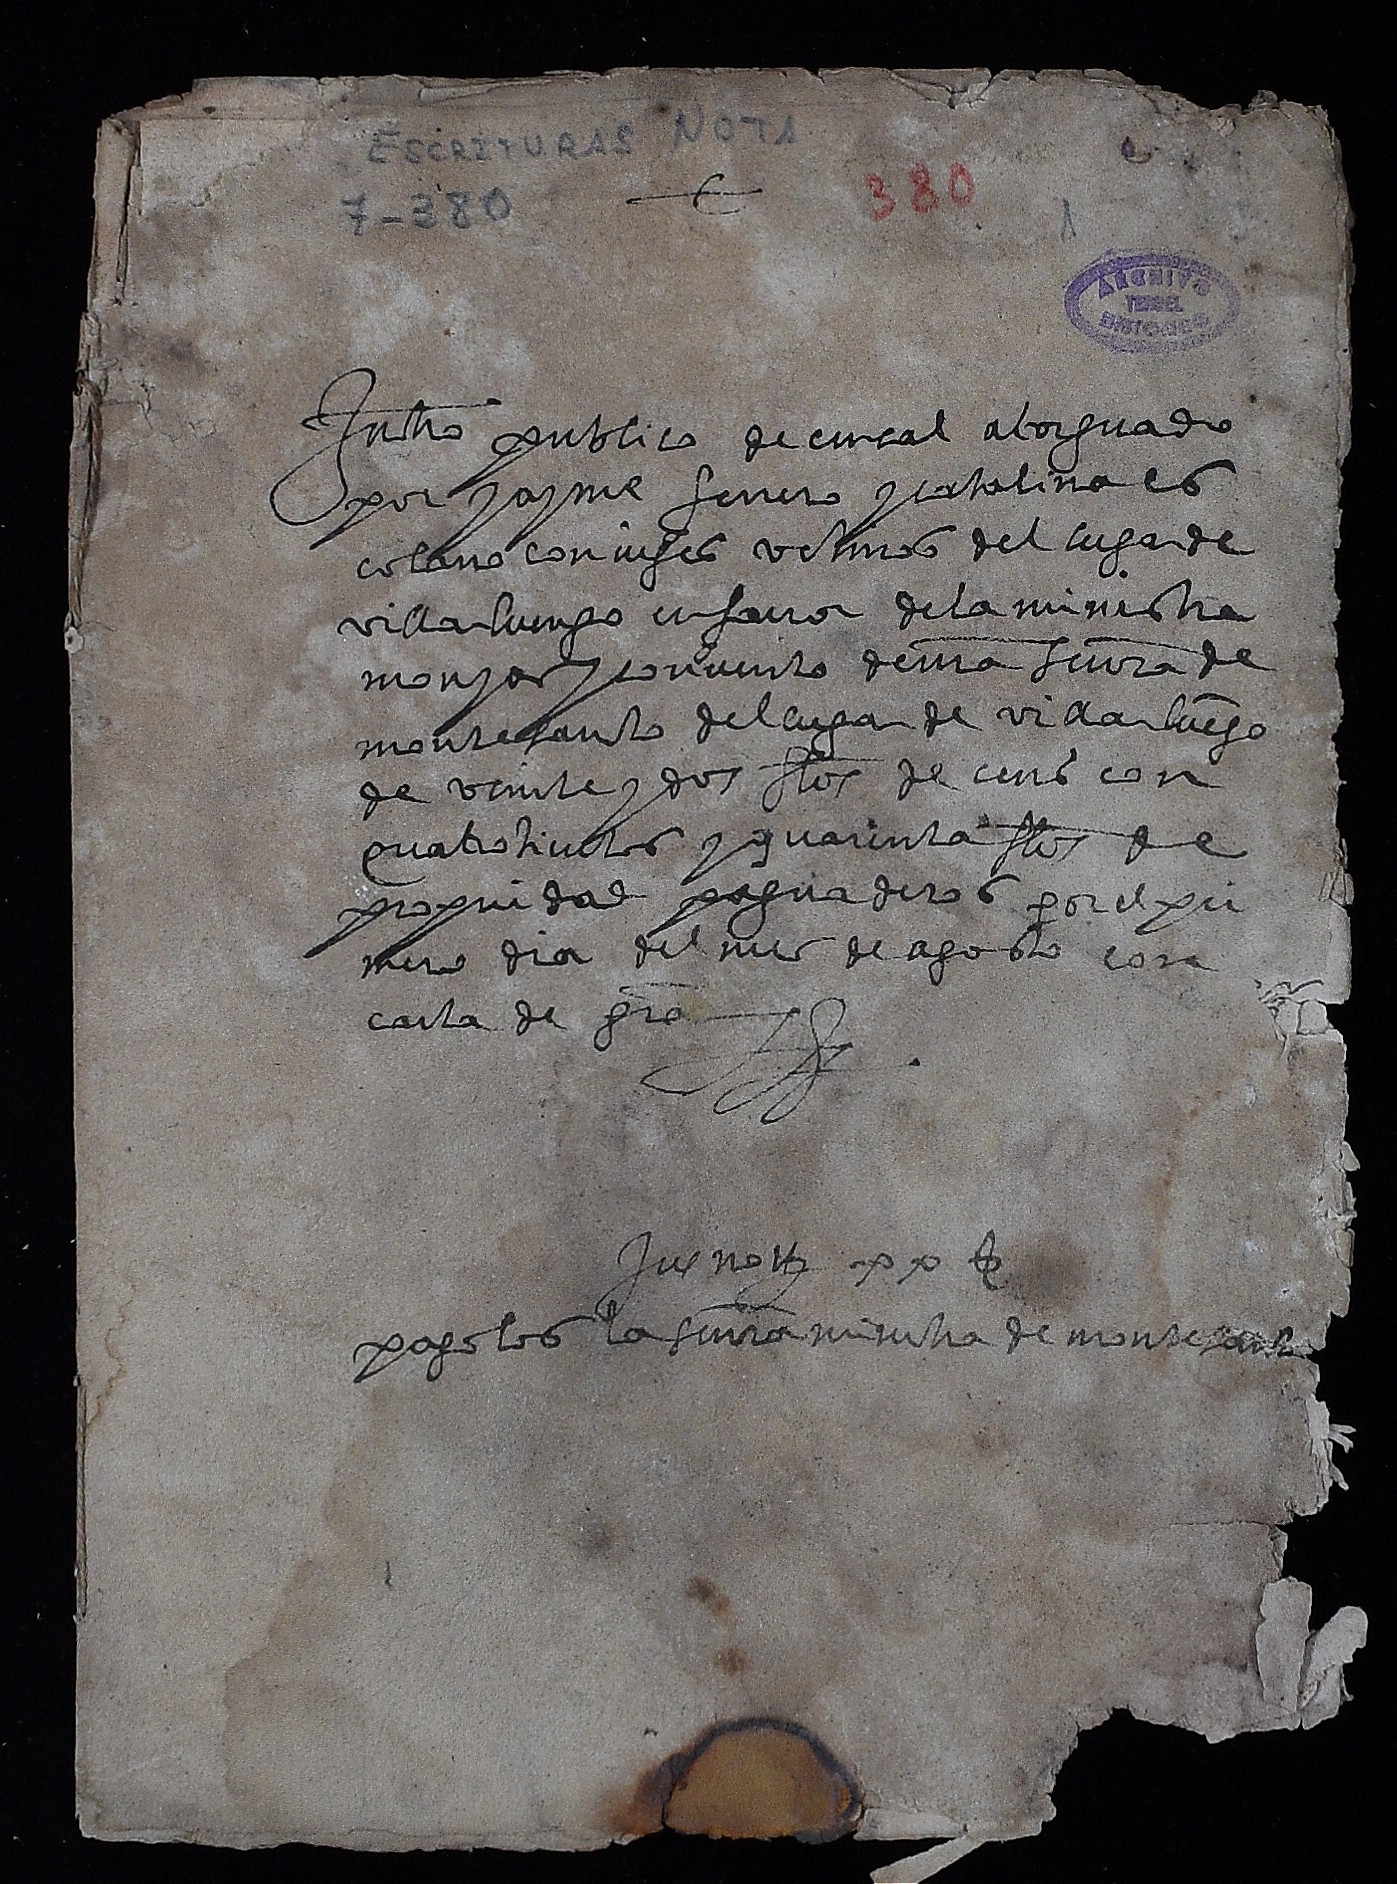 ESCRITURAS NOTA
7-380
380
ARCHIVO
TERUEL
HISTORICO
Instro publico de censal atorguado
por Jayme ferrero y catalina es
colano coniuges vecinos del lugar de
villarluengo en favor de la ministra
monjas y convento de nra senora de
montesanto del lugar de villarluego
de veinte y dos flos de cens con
quatrocientos y quarenta flos de
propriedad paguaderos por el pri
mero dia del mes de agosto con
carta de gra
pagolos la senora ministra de montesanto